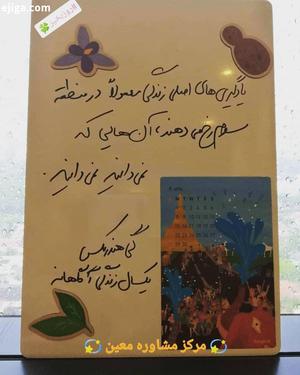 ejiga.com
یادگیری های اصلی زندگی معمولاً در منطقه
سوم رخ می دهند، آن هایی که
نمی دانید نمی دانید.
گی هندریکس
یکسال زندگی آگاهانه
مرکز مشاوره معین